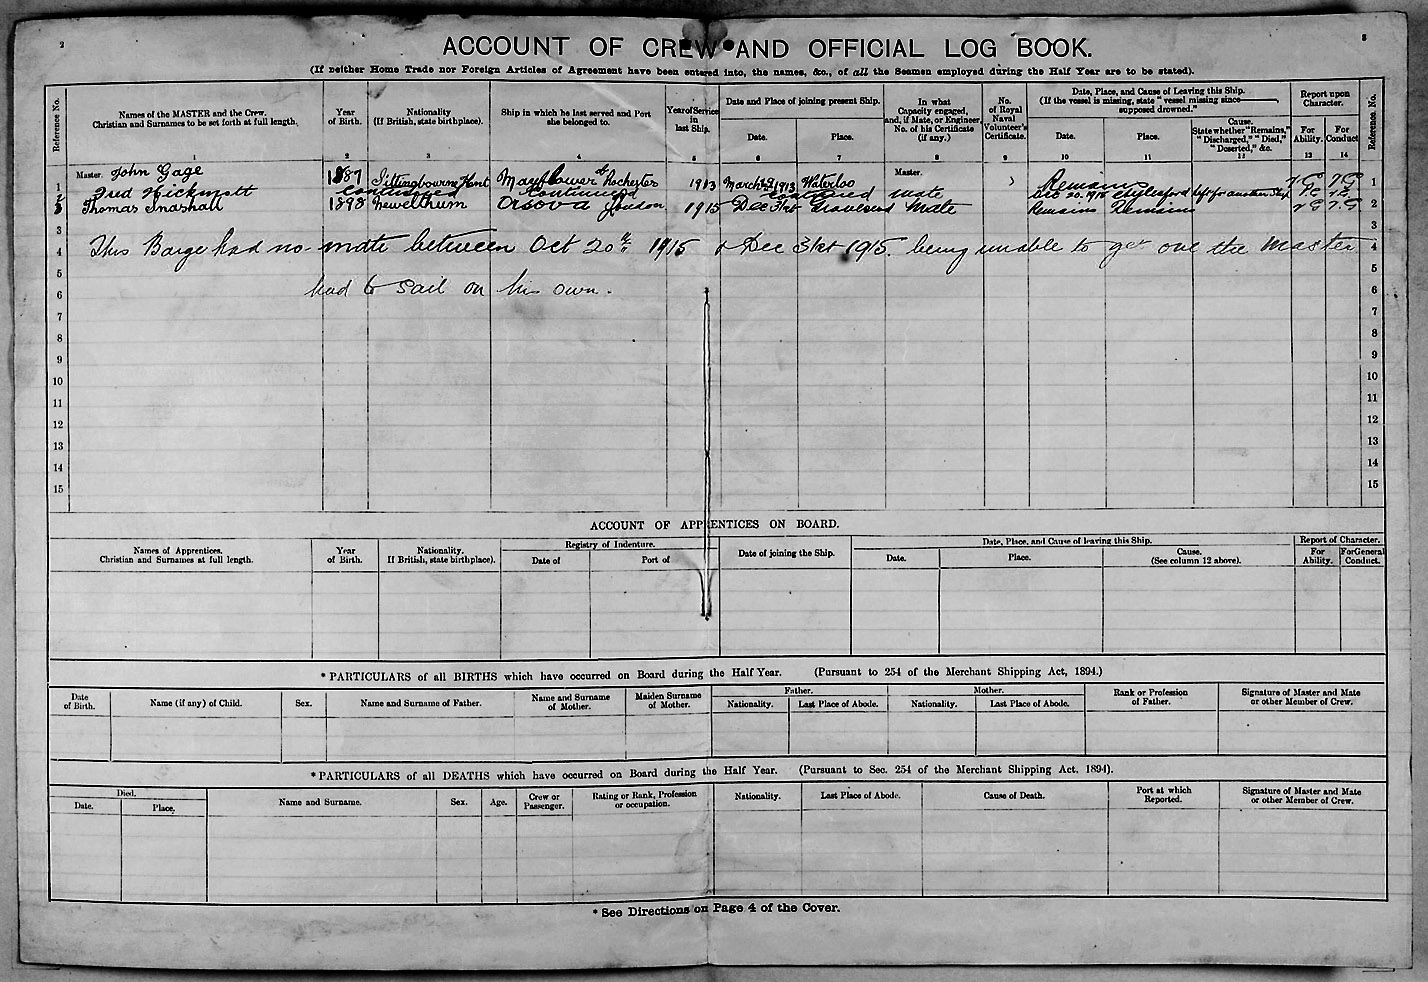 2
3
ACCOUNT OF CREW AND OFFICIAL LOG BOOK.
(If neither Home Trade nor Foreign Articles of Agreement have been entered into, the names, &c., of all the Seamen employed during the Half Year are to be stated).
Reference No.
Names of the MASTER and the Crew. Christian and Surnames to be set forth at full length.
Year of Birth.
Nationality (If British, state birthplace).
Ship in which he last served and Port she belonged to.
Year of Service in last Ship.
Date and Place of joining present Ship.
Date.
Place.
In what Capacity engaged, and, if Mate, or Engineer, No. of his Certificate (if any.)
No. of Royal Naval Volunteer's Certificate.
Date, Place, and Cause of Leaving this Ship. (If the vessel is missing, state "vessel missing since———, supposed drowned."
Date.
Place.
Cause. State whether "Remains," "Discharged," "Died," "Deserted," &c.
Report upon Character.
For Ability.
For Conduct
Reference No.
1 2 3 4 5 6 7 8 9 10 11 12 13 14
Master. John Gage 1887 Sittingbourne Kent Mayflower of Rochester 1913 March 1913 Waterloo Master. Remains V.G V.G
1 Fred Hickmott Continued Continued Continued Mate Oct 20. 1915 Aylesford left for another Ship 1
2 Thomas Snashall 1898 Orsova London 1915 Dec 31st Gravesend Mate Remains Remains V G V.G 2
3 3
4 This Barge had no mate between Oct 20th 1915 & Dec 31st 1915. being unable to get one the Master 4
5 5
had to sail on his own.
6 6
7 7
8 8
9 9
10 10
11 11
12 12
13 13
14 14
15 15
ACCOUNT OF APPRENTICES ON BOARD.
Names of Apprentices. Christian and Surnames at full length.
Year of Birth.
Nationality. If British, state birthplace).
Registry of Indenture.
Date of
Port of
Date of joining the Ship.
Date, Place, and Cause of leaving this Ship.
Date.
Place.
Cause. (See column 12 above).
Report of Character.
For Ability.
For General Conduct.
* PARTICULARS of all BIRTHS which have occurred on Board during the Half Year. (Pursuant to 254 of the Merchant Shipping Act, 1894.)
Date of Birth.
Name (if any) of Child.
Sex.
Name and Surname of Father.
Name and Surname of Mother.
Maiden Surname of Mother.
Father.
Nationality.
Last Place of Abode.
Mother.
Nationality.
Last Place of Abode.
Rank or Profession of Father.
Signature of Master and Mate or other Member of Crew.
* PARTICULARS of all DEATHS which have occurred on Board during the Half Year. (Pursuant to Sec. 254 of the Merchant Shipping Act, 1894).
Died.
Date.
Place.
Name and Surname.
Sex.
Age.
Crew or Passenger.
Rating or Rank, Profession or occupation.
Nationality.
Last Place of Abode.
Cause of Death.
Port at which Reported.
Signature of Master and Mate or other Member of Crew.
* See Directions on Page 4 of the Cover.